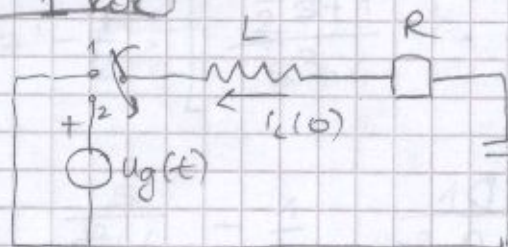 L R
1
2
+
i_L(0)
u_g(t)